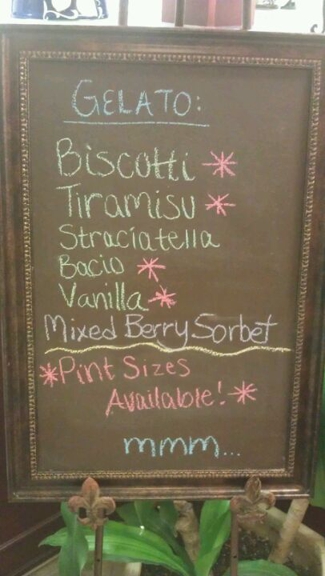 GELATO:
Biscotti *
Tiramisu *
Straciatella
Bacio *
Vanilla *
Mixed Berry Sorbet
*Pint Sizes
Available! *
mmm...